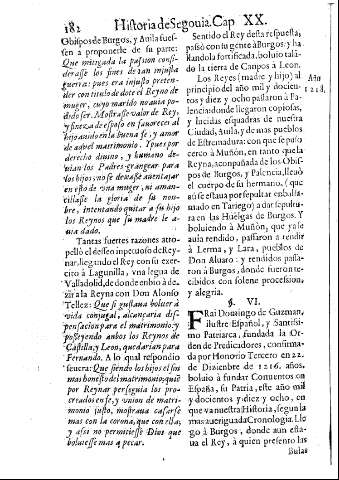 182 Historia de Segouia. Cap XX.
Obispos de Burgos, y Auila fuesen
a proponerle de su parte:
Que mitigada la passion considerasse
los fines de tan injusta
guerra: pues era injusto pretender
con titulo de dote el Reyno de
muger, cuyo marido no auia podido
ser. Mostrasse valor de Rey,
y fineza de esposo en fauorecer al
hijo auido en la buena fe, y amor
de aquel matrimonio. Ypues por
derecho diuino, y humano deuian
los Padres grangear para
los hijos; no se dexasse auentajar
en esto de vna muger, ni amancillasse
la gloria de su nombre,
intentando quitar a su hijo
los Reynos que su madre le auia
dado.
Tantas fuertes razones atropelló
el desseo impetuoso de Reynar,
llegando el Rey con su exercito
à Lagunilla, vna legua de
Valladolid, de donde enbió à dezir
a la Reyna con Don Alonso
Tellez: Que si gustaua boluer à
vida conjugal, alcançaria dispensacion
para el matrimonio: y
posseyendo anbos los Reynos de
Castilla, y Leon, quedarian para
Fernando. A lo qual respondio
seuera: Que siendo los hijos el fin
mas honesto del matrimonio, quie
por Reynar perseguia los procreados
en fe, y vnion de matrimonio
justo, mostraua casarse
mas con la corona, que con ella;
y assi no permitiesse Dios que
boluiesse mas a pecar.
Sentido el Rey desta respuesta,
passó con su gente à Burgos, y hallandola
fortificada, boluio talando
la tierra de Canpos à Leon.
Los Reyes (madre y hijo) al
principio del año mil y docientos
y diez y ocho passaron à Palencia
donde llegaron copiosas,
y lucidas esquadras de nuestra
Ciudad, Auila, y de mas pueblos
de Estremadura: con que se passo
cerco à Muñón, en tanto que la
Reyna, aconpañada de los Obispos
de Burgos, y Palencia, lleuó
el cuerpo de su hermano, (que
aũ se estaua por sepultar enbalsamado
en Tariego) a dar sepultura
en las Huelgas de Burgos. Y
boluiendo à Muñón, que ya se
auia rendido, passaron a rendir
à Lerma, y Lara, pueblos de
Don Aluaro: y rendidos passaron
à Burgos, donde fueron recebidos
con solene procession,
y alegria.
Año
1218.
§. VI.
FRai Domingo de Guzman,
ilustre Español, y Santissimo
Patriarca, fundada la Orden
de Predicadores, confirmada
por Honorio Tercero en 22.
de Diziembre de 1216. años,
boluio a fundar Conuentos en
España, su Patria, este año mil
y docientos y diez y ocho, en
que va nuestra Historia, segun la
mas aueriguada Cronologia. Llegó
à Burgos, donde aun estaua
el Rey, à quien presento las
Bulas